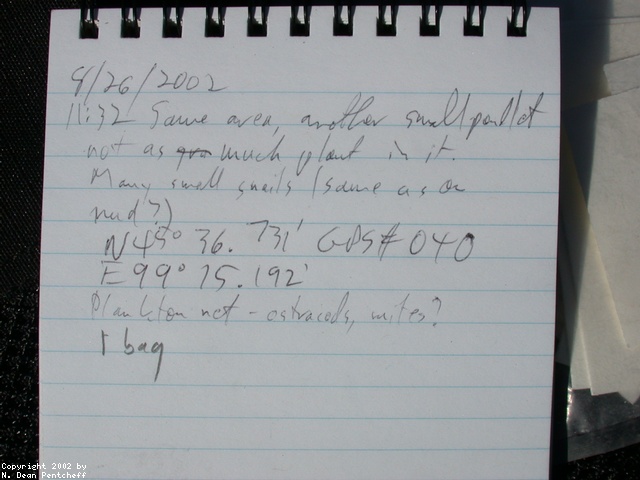 8/26/2002
11:32 Same area, another small pondlet
not as much plant in it.
Many small snails (same as on
mud?)
N45° 36.731' GPS# 040
E99° 15.192'
Plankton net - ostracods, mites?
1 bag
Copyright 2002 by
N. Dean Pentcheff